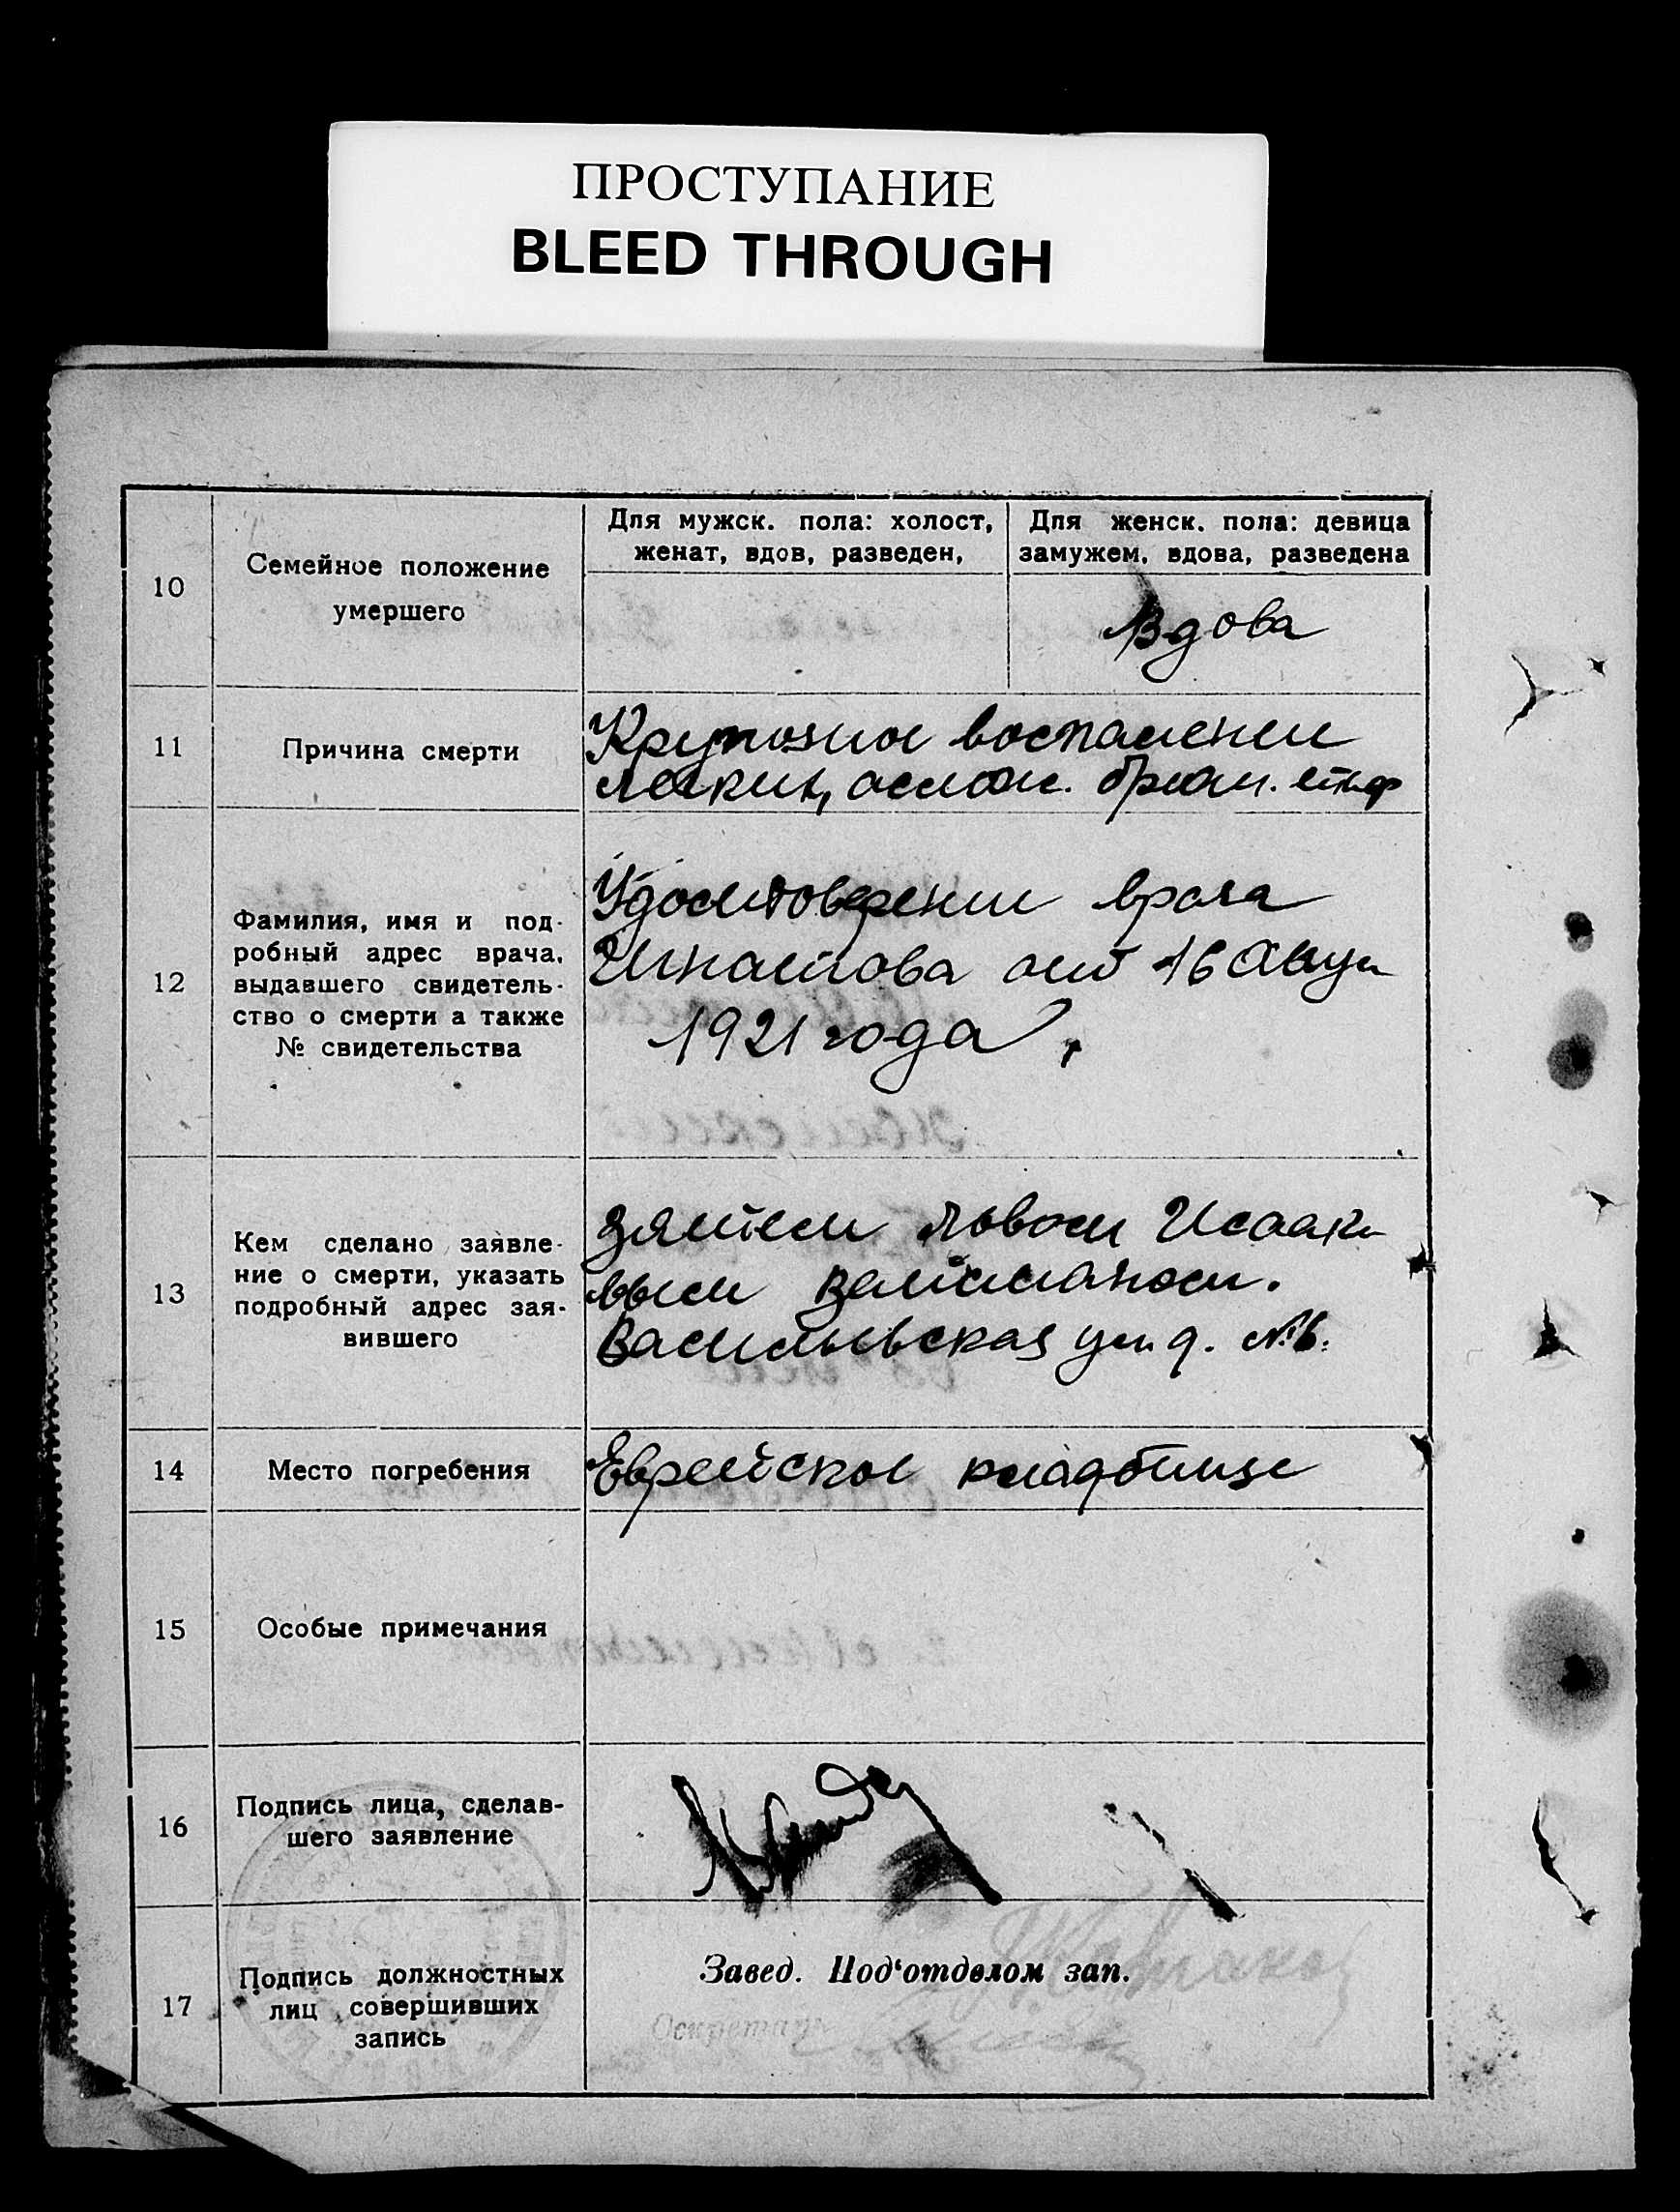 ПРОСТУПАНИЕ
BLEED THROUGH
10
Семейное положение
умершего
Для мужск. пола: холост,
женат, вдов, разведен,
Для женск. пола: девица
замужем, вдова, разведена
Вдова
11
Причина смерти
Крупозное воспаление
легких,ослож. брюш. тиф
12
Фамилия, имя и под-
робный адрес врача,
выдавшего свидетель-
ство о смерти а также
№ свидетельства
Удостоверение врача
Игнатова от 16 Авгу
1921 года.
13
Кем сделано заявле-
ние о смерти, указать
подробный адрес зая-
вившего
Зятем Львом Исаак
вым Вайсманом.
Васильевская ул. д. №6.
14
Место погребения
Еврейское кладбище
15
Особые примечания
16
Подпись лица, сделав-
шего заявление
17
Подпись должностных
лиц совершивших
запись
Завед. Под‘отделом зап.